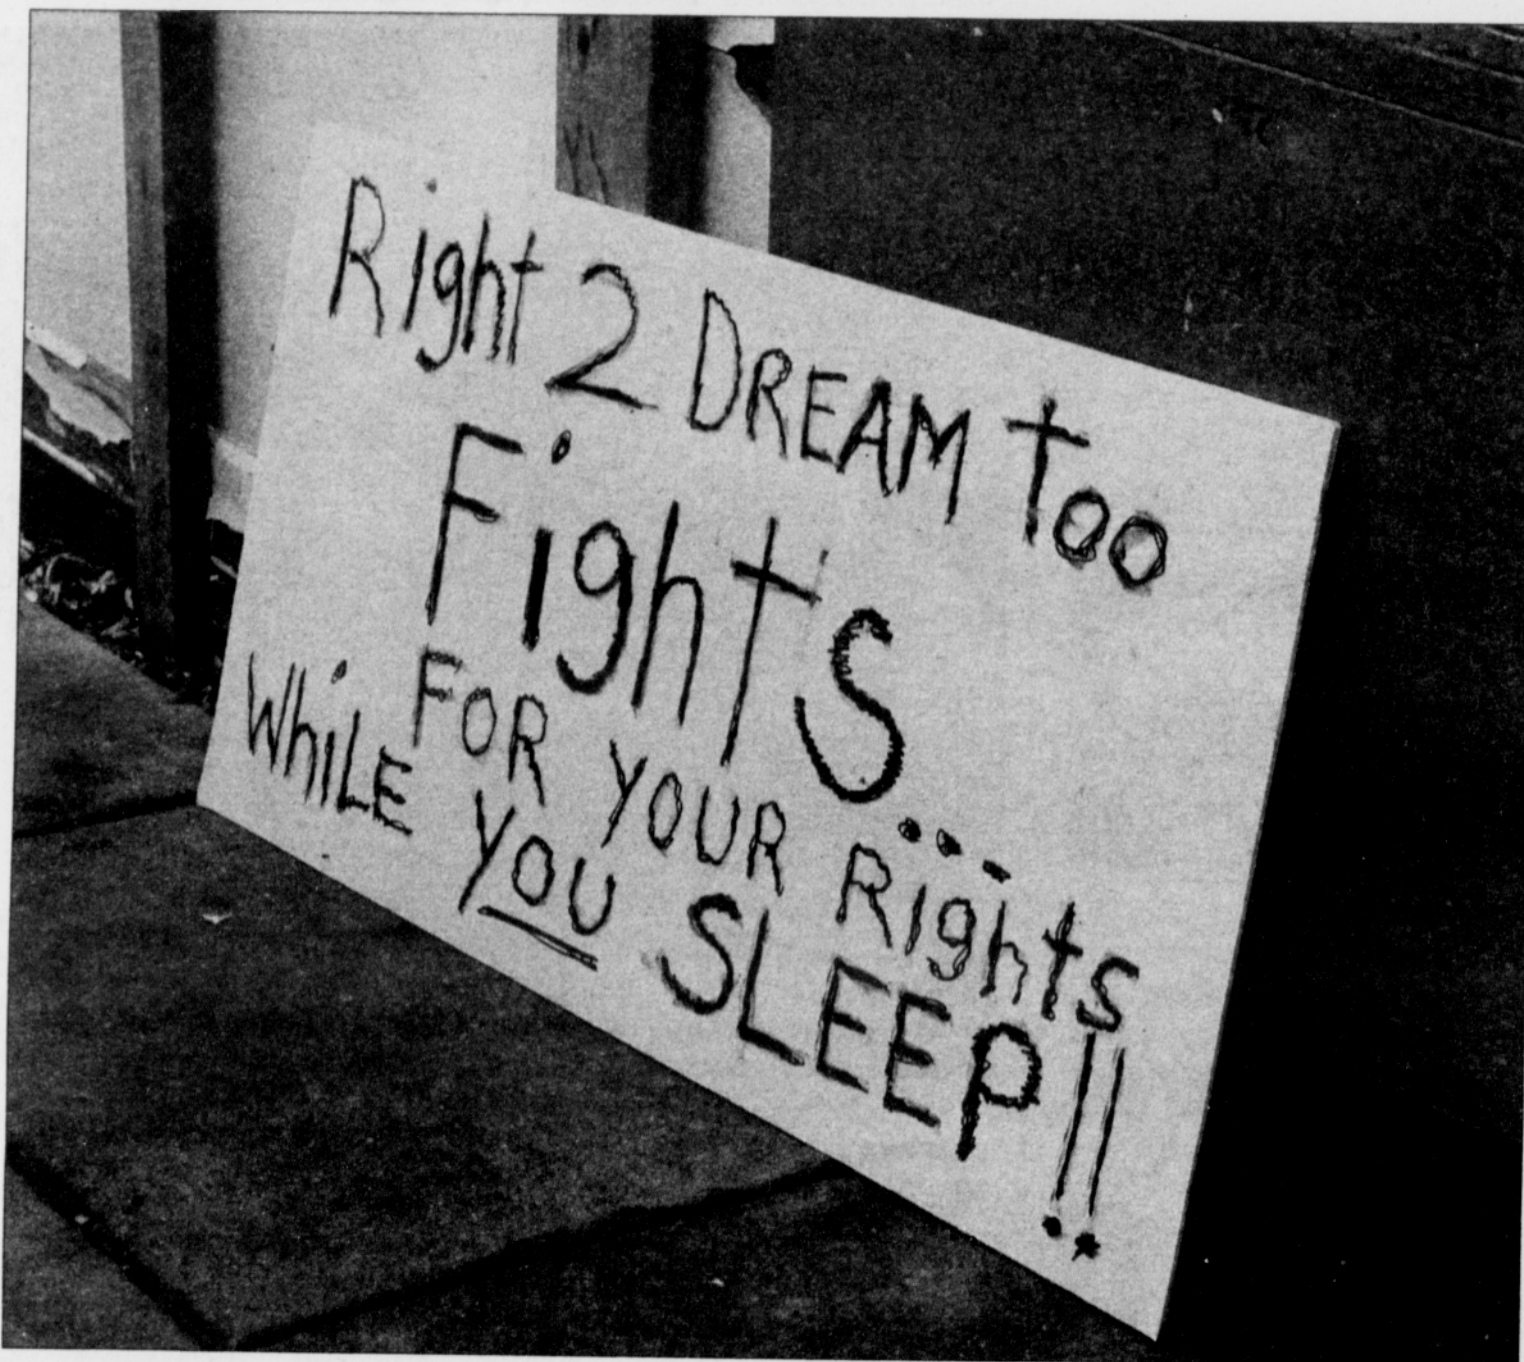 Right 2 DREAM Too
Fights...
FOR YOUR Rights
WhiLE YOU SLEEP!!